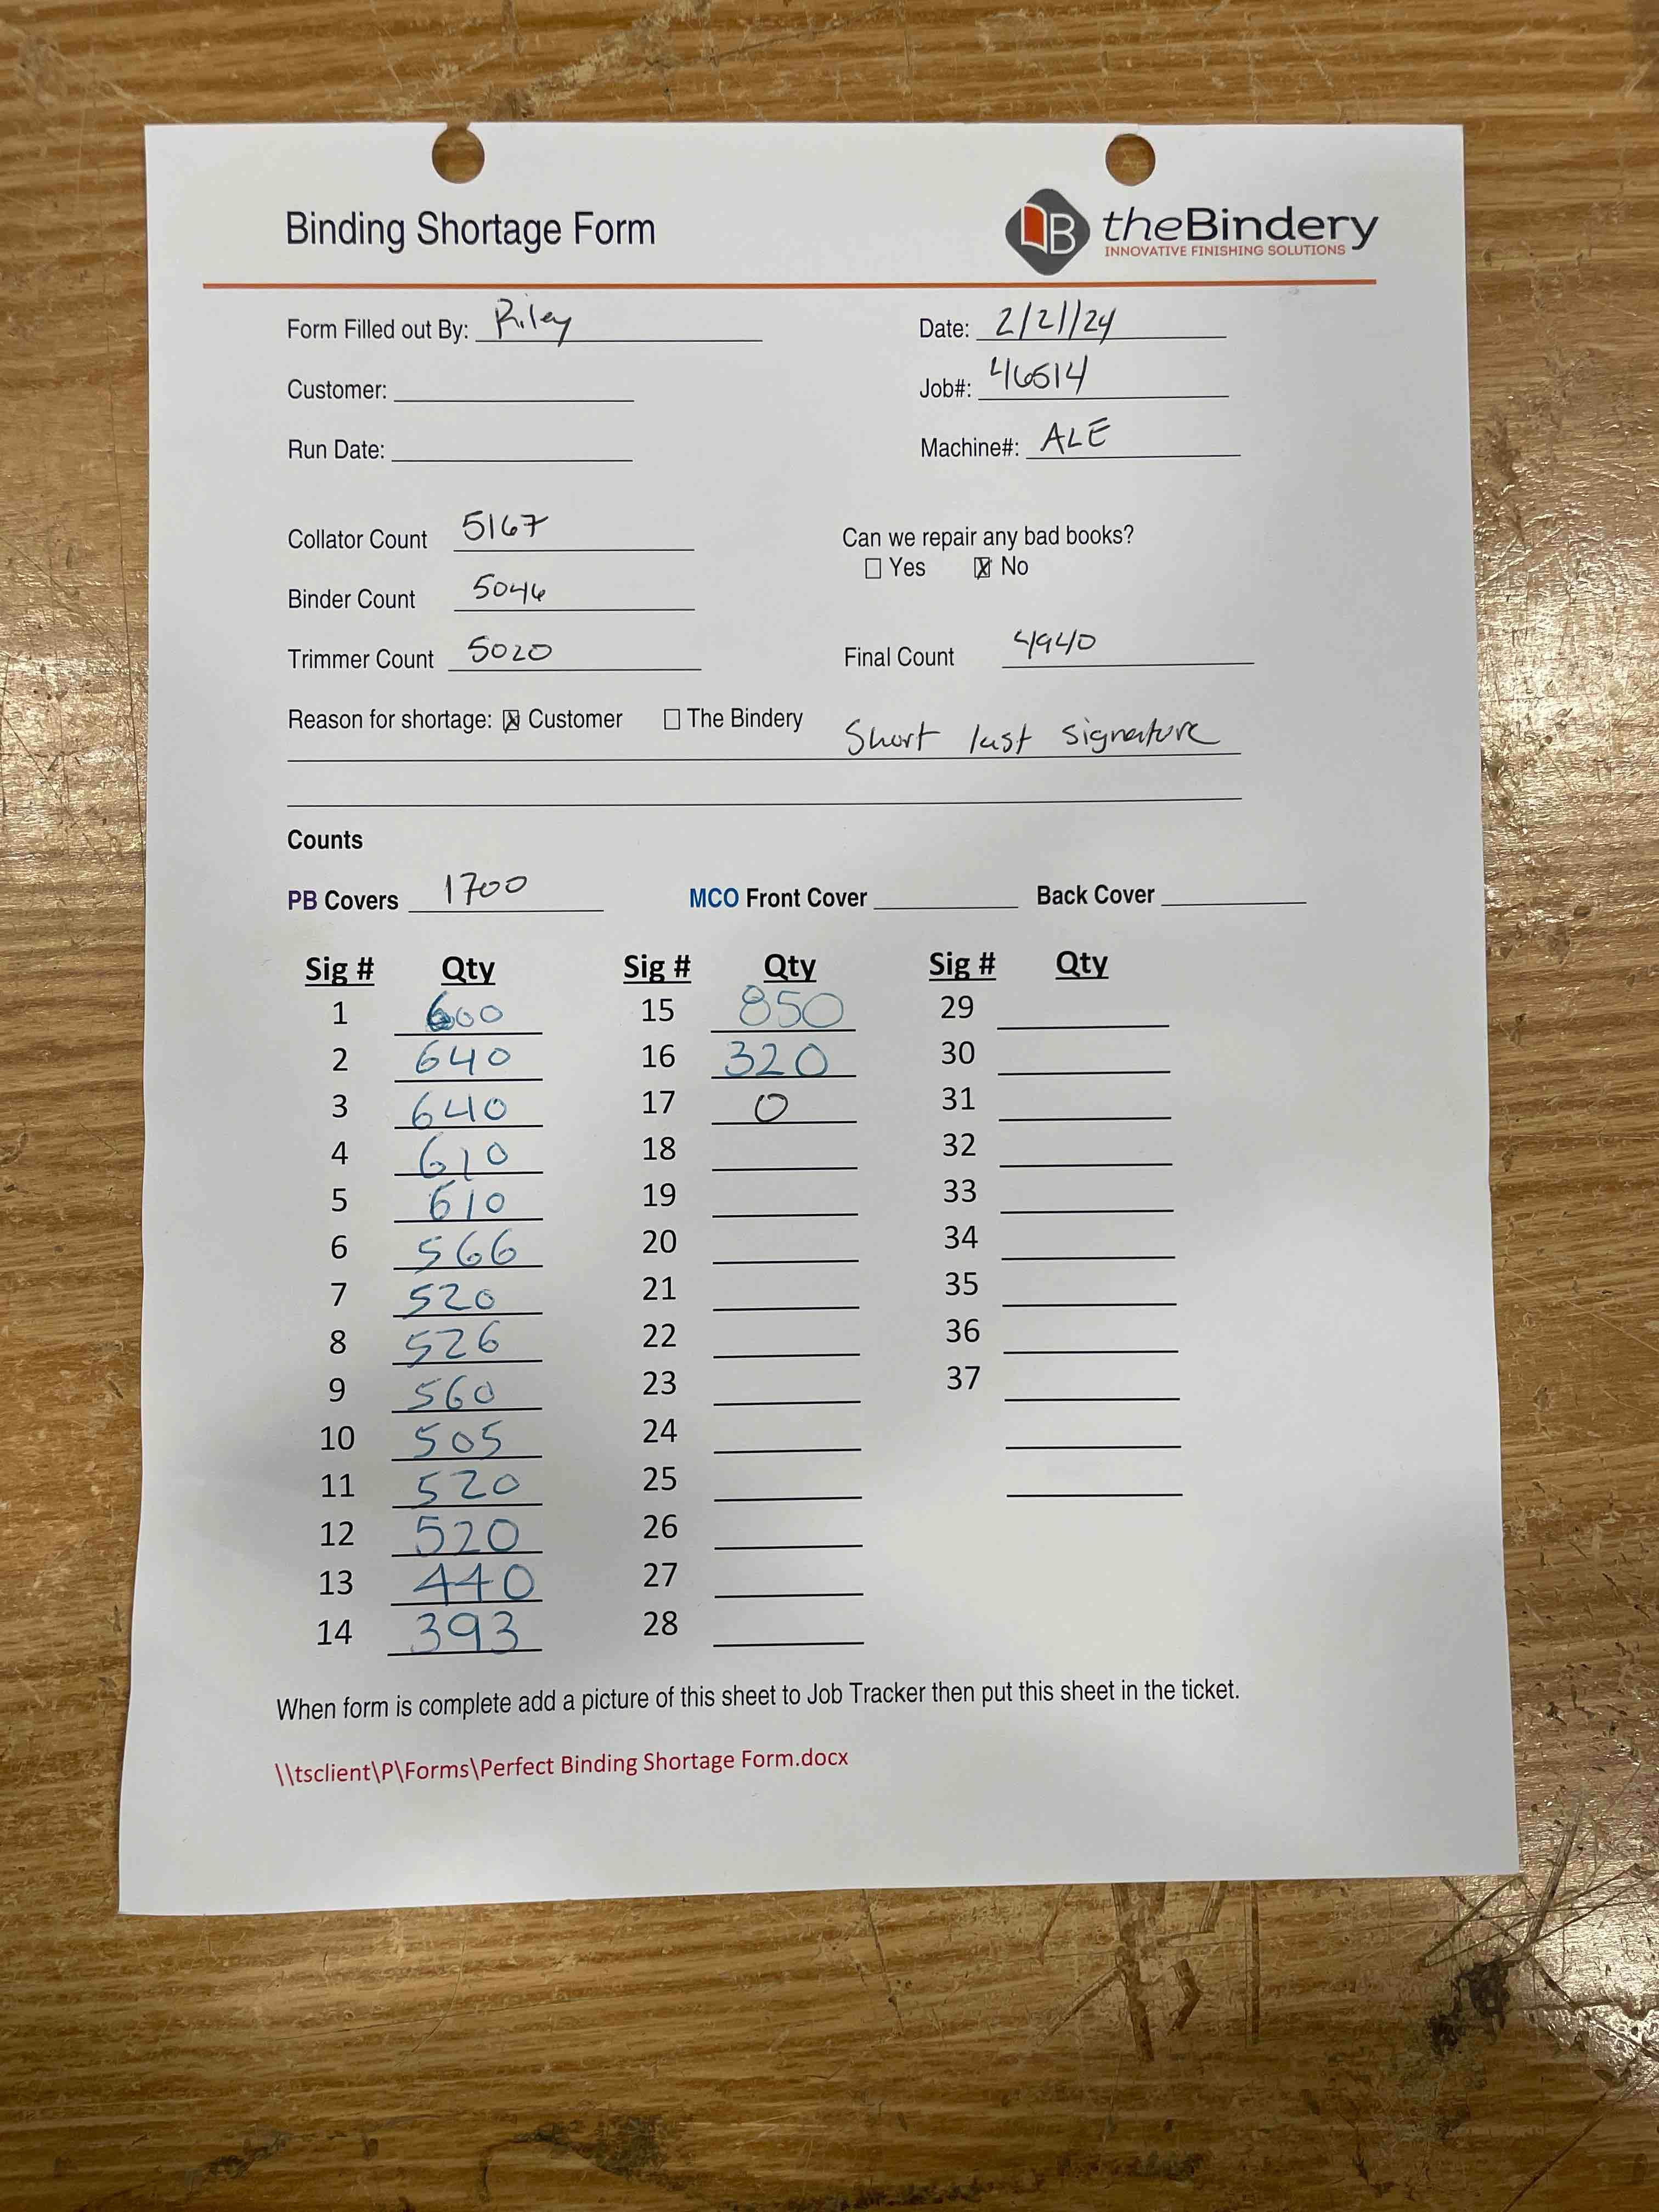 Binding Shortage Form
theBindery
INNOVATIVE FINISHING SOLUTIONS
Form Filled out By: Riley Date: 2/21/24
Customer: Job#: 46514
Run Date: Machine#: ALE
Collator Count 5167 Can we repair any bad books?
☐ Yes ☒ No
Binder Count 5046
Trimmer Count 5020 Final Count 4940
Reason for shortage: ☒ Customer ☐ The Bindery Short last signature
Counts
PB Covers 1700 MCO Front Cover Back Cover
Sig # Qty Sig # Qty Sig # Qty
1 600 15 850 29
2 640 16 320 30
3 640 17 0 31
4 610 18 32
5 610 19 33
6 566 20 34
7 520 21 35
8 526 22 36
9 560 23 37
10 505 24
11 520 25
12 520 26
13 440 27
14 393 28
When form is complete add a picture of this sheet to Job Tracker then put this sheet in the ticket.
\\tsclient\P\Forms\Perfect Binding Shortage Form.docx